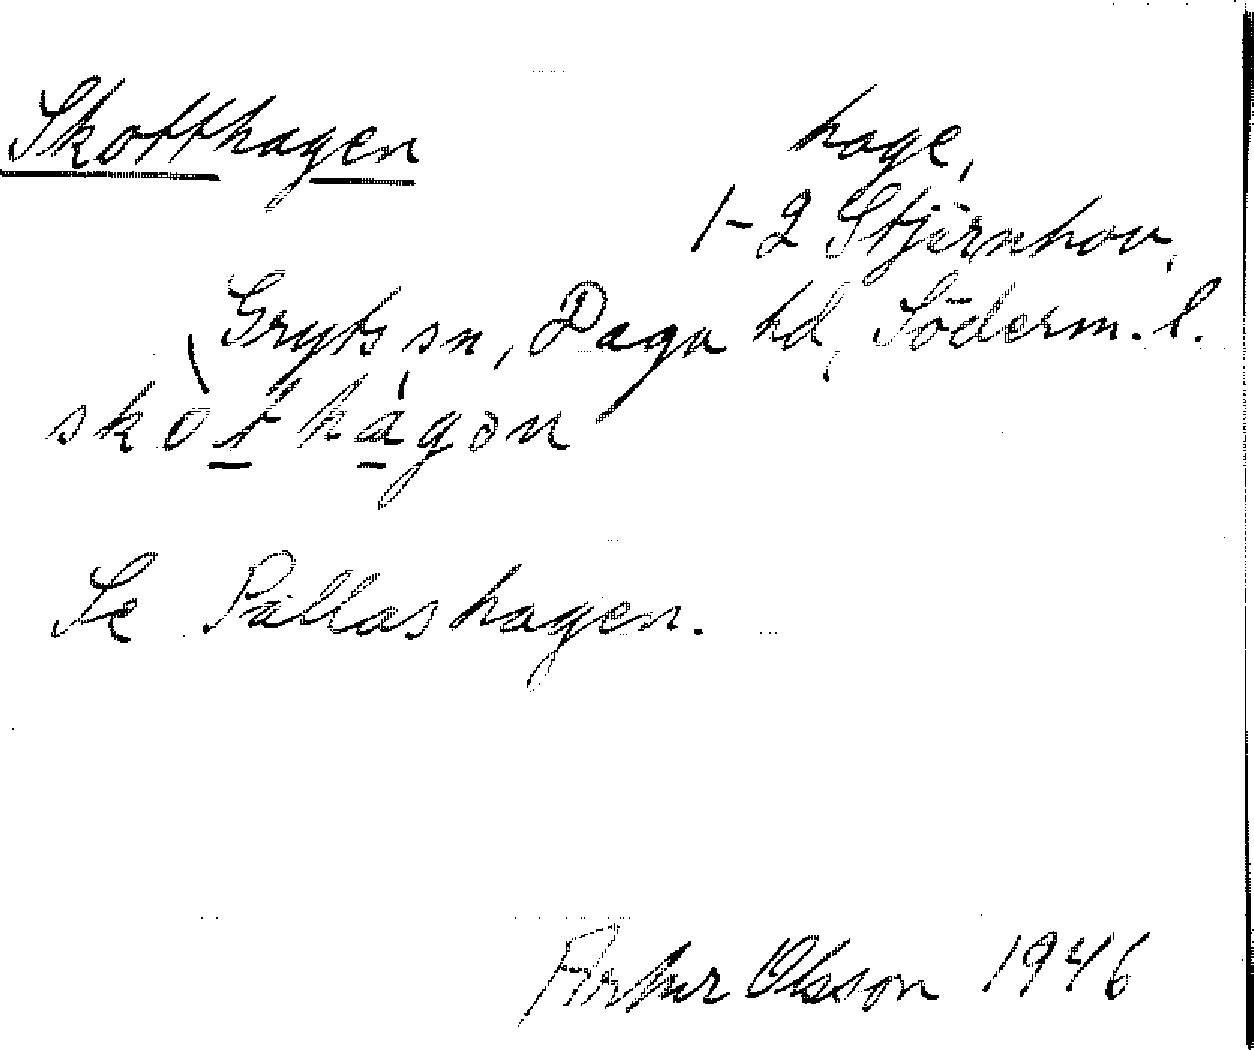 Skotthagen hage,
1-2 Stjärnhov,
Gryts sn, Daga hd, Söderm. l.
skòt hágən
Se Pállashagen.
Artur Olsson 1946